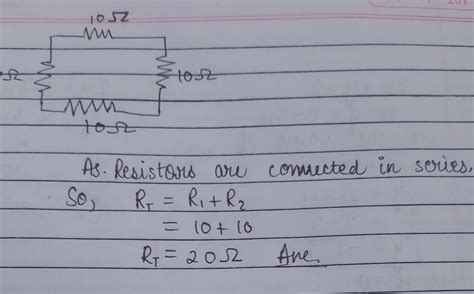 10Ω
Ω 10Ω
10Ω
As. Resistors are connected in series.
So, R_T = R_1 + R_2
= 10 + 10
R_T = 20Ω Ans.